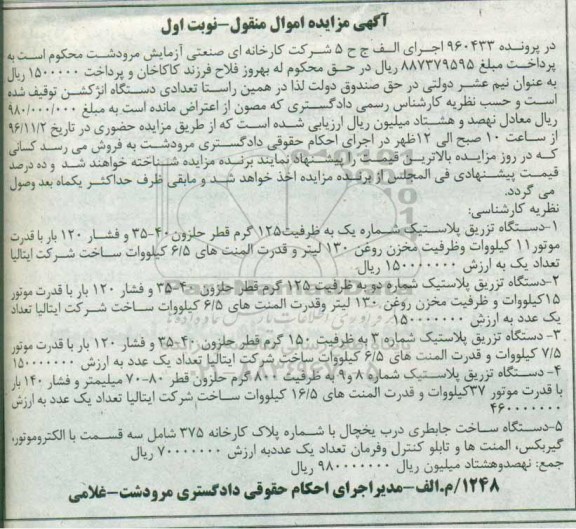 آگهی مزایده اموال منقول-نوبت اول
در پرونده ۹۶۰۴۳۳ اجرای الف ج ح ۵ شرکت کارخانه ای صنعتی آزمایش مرودشت محکوم است به
پرداخت مبلغ ۸۸۷۳۷۹۵۹۵ ریال در حق محکوم له بهروز فلاح فرزند کاکاخان و پرداخت ۱۵۰۰۰۰۰ ریال
به عنوان نیم عشر دولتی در حق صندوق دولت لذا در همین راستا تعدادی دستگاه انژکشن توقیف شده
است و حسب نظریه کارشناس رسمی دادگستری که مصون از اعتراض مانده است به مبلغ ۹۸۰/۰۰۰/۰۰۰
ریال معادل نهصد و هشتاد میلیون ریال ارزیابی شده است که از طریق مزایده حضوری در تاریخ ۹۶/۱۱/۲
از ساعت ۱۰ صبح الی ۱۲ظهر در اجرای احکام حقوقی دادگستری مرودشت به فروش می رسد کسانی
که در روز مزایده بالاترین قیمت را پیشنهاد نمایند برنده مزایده شناخته خواهند شد و ده درصد
قیمت پیشنهادی فی المجلس از برنده مزایده اخذ خواهد شد و مابقی ظرف حداکثر یکماه بعد وصول
می گردد.
نظریه کارشناسی:
۱-دستگاه تزریق پلاستیک شماره یک به ظرفیت۱۲۵ گرم قطر حلزون۴۰-۳۵ و فشار ۱۲۰ بار با قدرت
موتور۱۱ کیلووات وظرفیت مخزن روغن ۱۳۰ لیتر و قدرت المنت های ۶/۵ کیلووات ساخت شرکت ایتالیا
تعداد یک به ارزش ۱۵۰۰۰۰۰۰۰ ریال.
۲-دستگاه تزریق پلاستیک شماره دو به ظرفیت ۱۲۵ گرم قطر حلزون ۴۰-۳۵ و فشار ۱۲۰ بار با قدرت موتور
۱۵کیلووات و ظرفیت مخزن روغن ۱۳۰ لیتر وقدرت المنت های ۶/۵ کیلووات ساخت شرکت ایتالیا تعداد
یک عدد به ارزش ۱۵۰۰۰۰۰۰۰
۳- دستگاه تزریق پلاستیک شماره ۳ به ظرفیت ۱۵۰ گرم قطر حلزون ۴۰-۳۵ و فشار ۱۲۰ بار با قدرت موتور
۷/۵ کیلووات و قدرت المنت های ۶/۵ کیلووات ساخت شرکت ایتالیا تعداد یک عدد به ارزش ۱۵۰۰۰۰۰۰۰
۴- دستگاه تزریق پلاستیک شماره ۸ و۹ به ظرفیت ۸۰۰ گرم حلزون قطر ۸۰-۷۰ میلیمتر و فشار ۱۴۰ بار
با قدرت موتور ۳۷کیلووات و قدرت المنت های ۱۶/۵ کیلووات ساخت شرکت ایتالیا تعداد یک عدد به ارزش
۴۶۰۰۰۰۰۰۰
۵-دستگاه ساخت جابطری درب یخچال با شماره پلاک کارخانه ۳۷۵ شامل سه قسمت با الکتروموتور،
گیربکس، المنت ها و تابلو کنترل وفرمان تعداد یک عددبه ارزش ۷۰۰۰۰۰۰۰ ریال
جمع: نهصدوهشتاد میلیون ریال ۹۸۰۰۰۰۰۰۰ ریال
۱۲۴۸/م.الف-مدیراجرای احکام حقوقی دادگستری مرودشت-غلامی